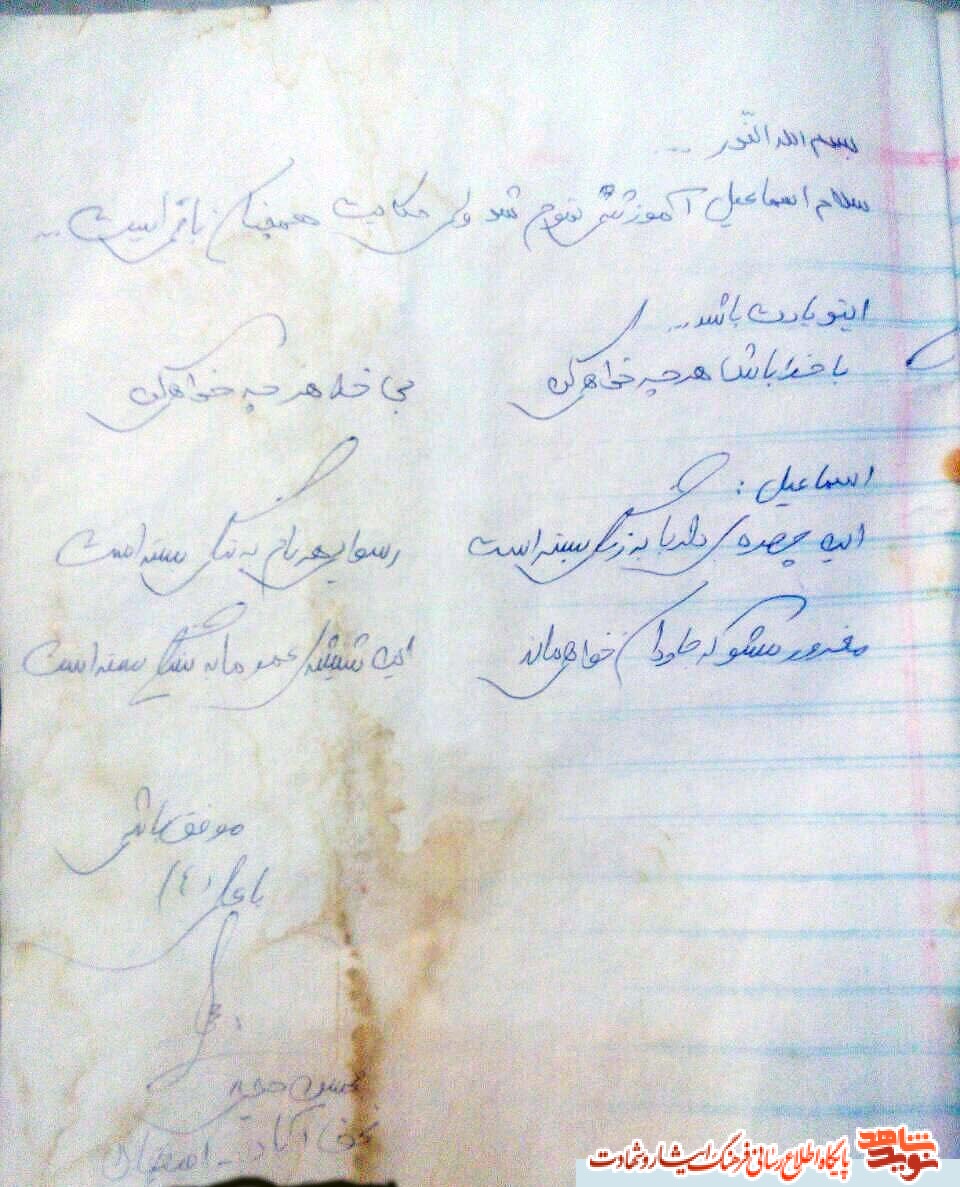 بسم الله النور ...
سلام اسماعیل آموزشی تموم شد ولی حکایت همچنان باقی است ...
اینو یادت باشد ...
با خدا باش هر چه خواهی کن بی خدا هر چه خواهی کن
اسماعیل :
این چهره‌ی دلربا به زنگی بسته است رسوایی هر نام به ننگی بسته است
مغرور مشو که جاودان خواهی ماند این شیشه‌ی عمر ما به سنگی بسته است
موفق باشی
یا علی (ع)
محسن حججی
نجف آباد - اصفهان
نوید شاهد
پایگاه اطلاع رسانی فرهنگ ایثار و شهادت